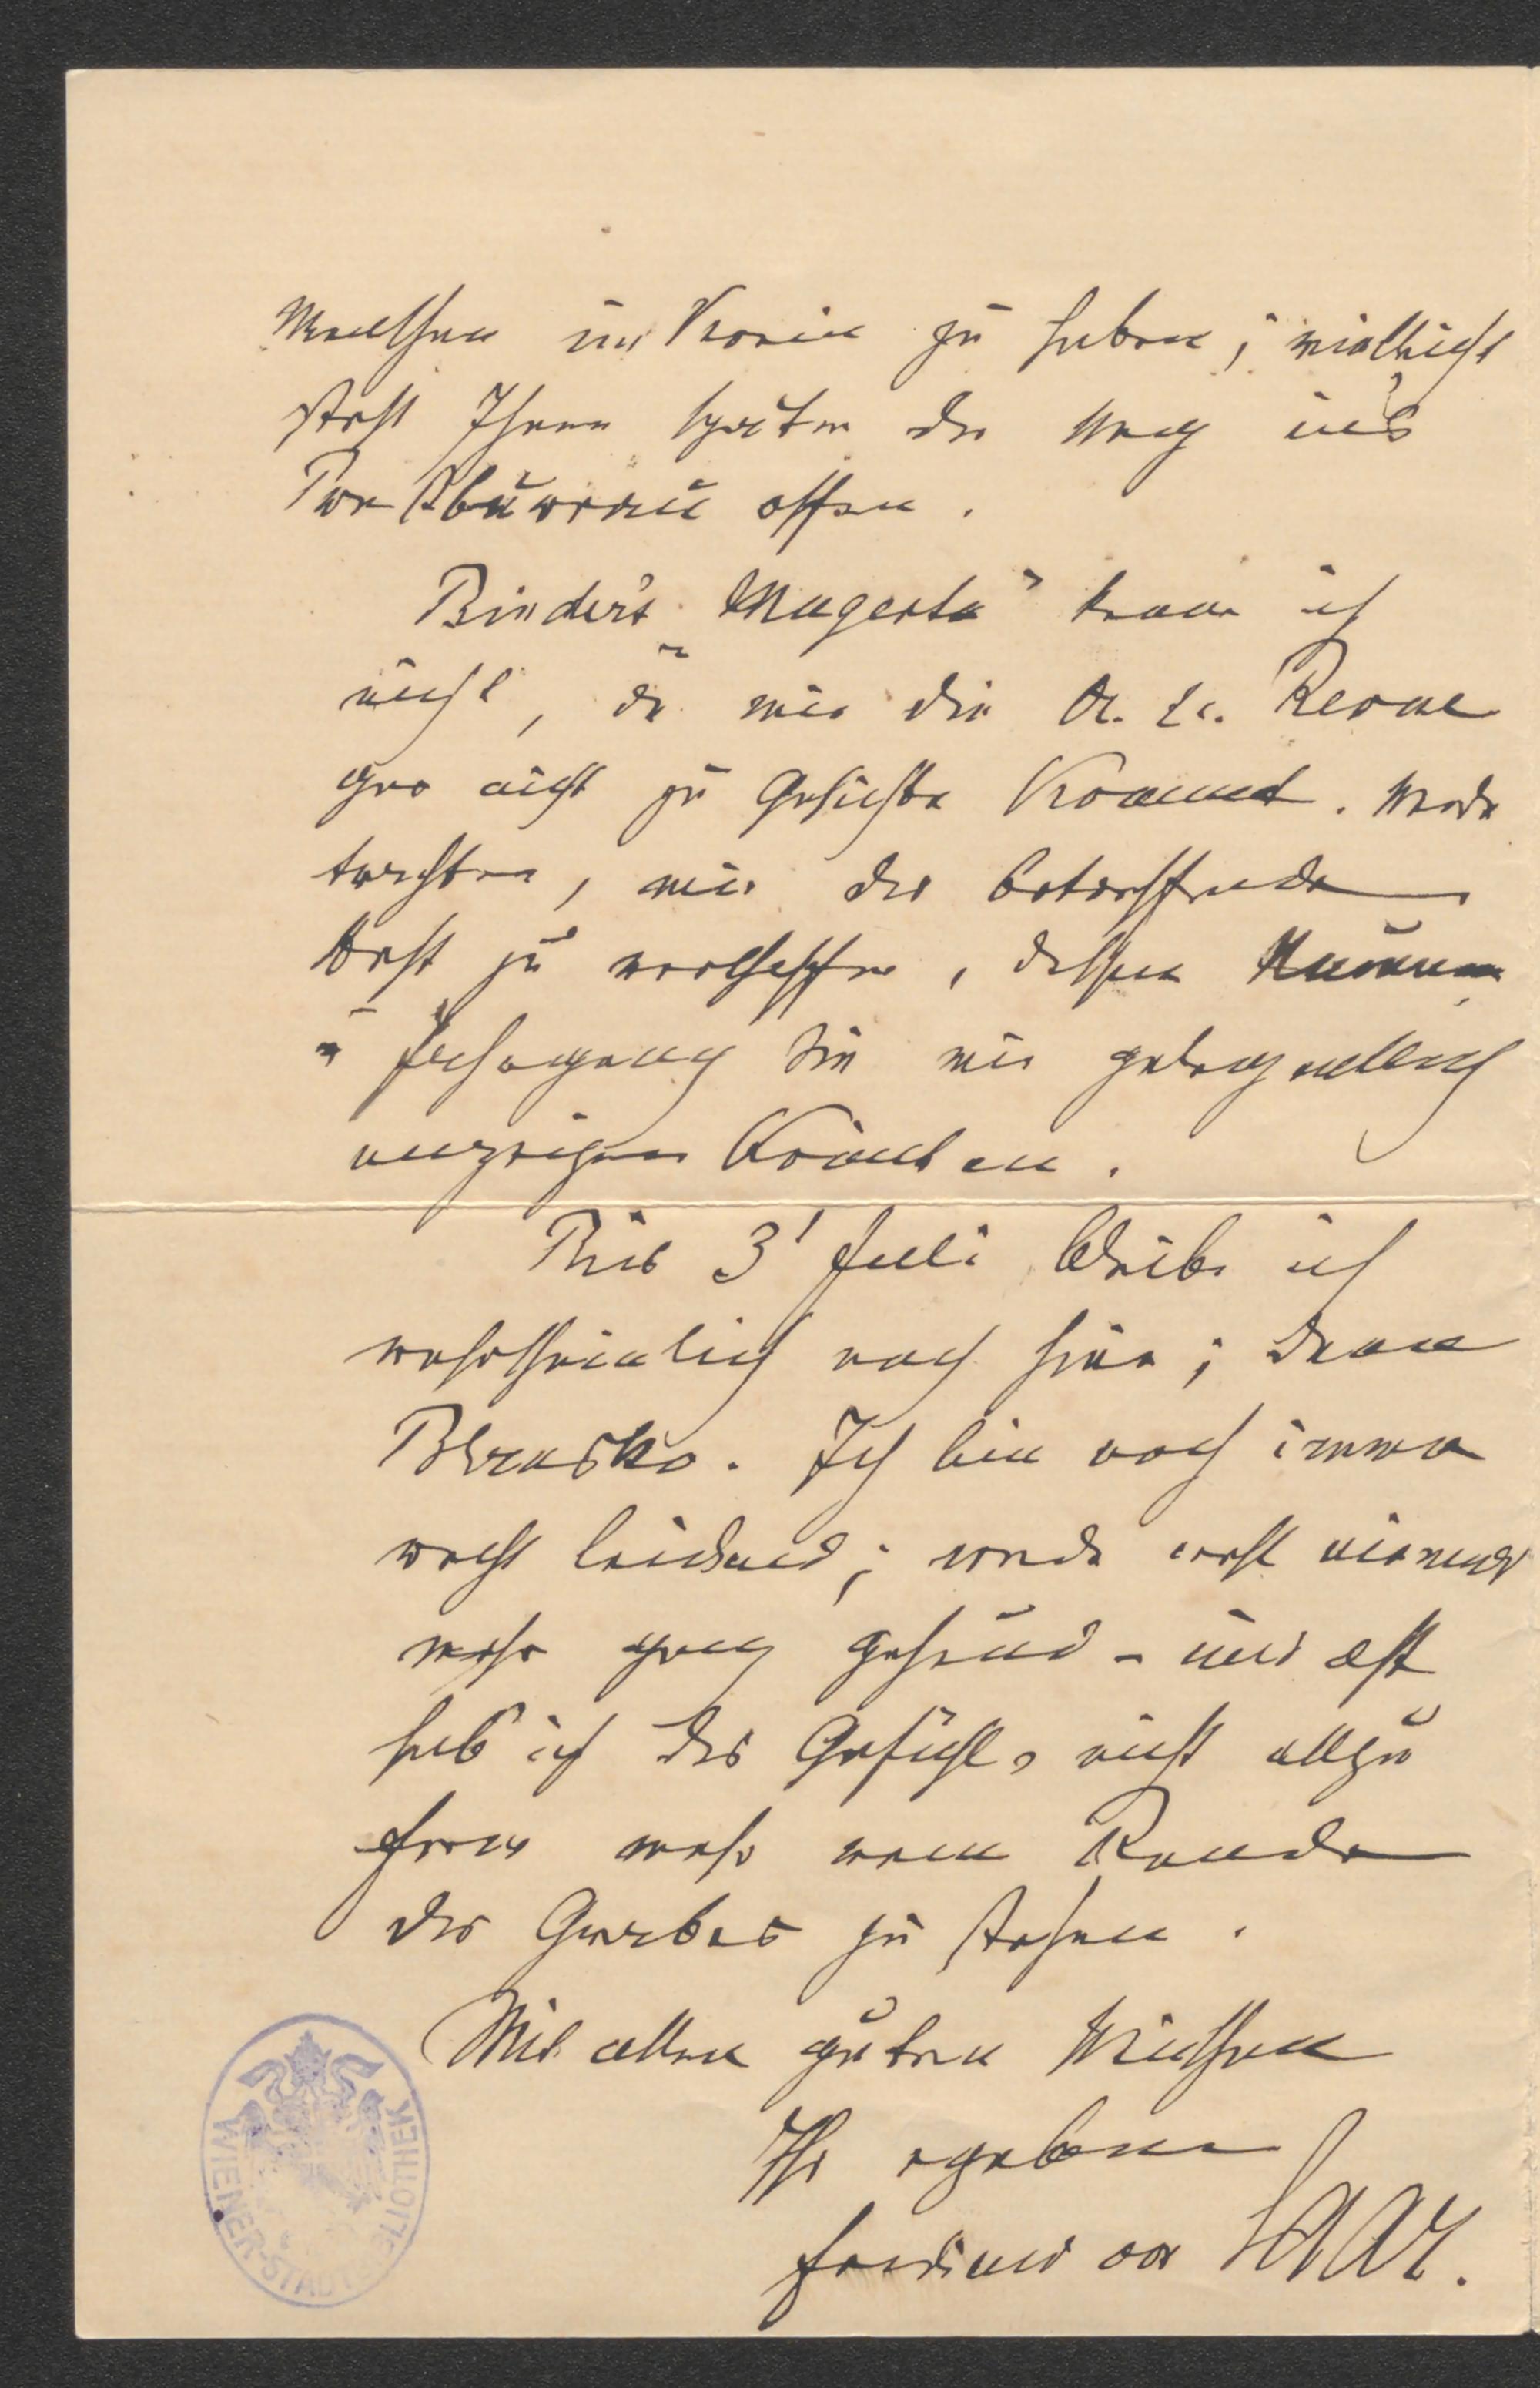 Menschen im Verein zu haben; vielleicht
steht Ihnen später der Weg ins
offen.
Binder's „Magerta" kenne ich
nicht, da mir die Revue
gar nicht zu Gesichte kommt. Werde
trachten, mir das betreffende
Heft zu verschaffen, dessen Nummer
u Jahrgang Sie mir gelegentlich
anzeigen könnten.
Bis 3' Juli bleibe ich
wahrscheinlich noch hier; dann
Blansko. Ich bin noch immer
recht leidend; werde wohl niemals
mehr ganz gesund – und oft
hab' ich das Gefühl, nicht allzu
fern mehr vom Rande
des Grabes zu stehen.
Mit allen guten Wünschen
Ihr ergebener
Ferdinand von SAAR.
WIENER-STADTBIBLIOTHEK